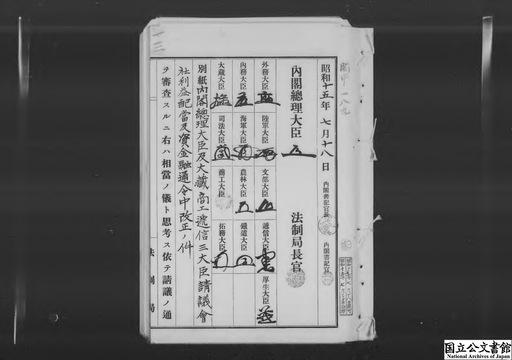 昭和十五年七月十八日
内閣書記官長
内閣書記官
内閣總理大臣
法制局長官
外務大臣
陸軍大臣
文部大臣
遞信大臣
厚生大臣
内務大臣
海軍大臣
農林大臣
鐵道大臣
大蔵大臣
司法大臣
商工大臣
拓務大臣
別紙内閣總理大臣及大蔵商工遞信三大臣請議會
社利益配當及資金融通令中改正ノ件
ヲ審査スルニ右ハ相當ノ儀ト思考ス依テ請議ノ通
法制局
国立公文書館
National Archives of Japan